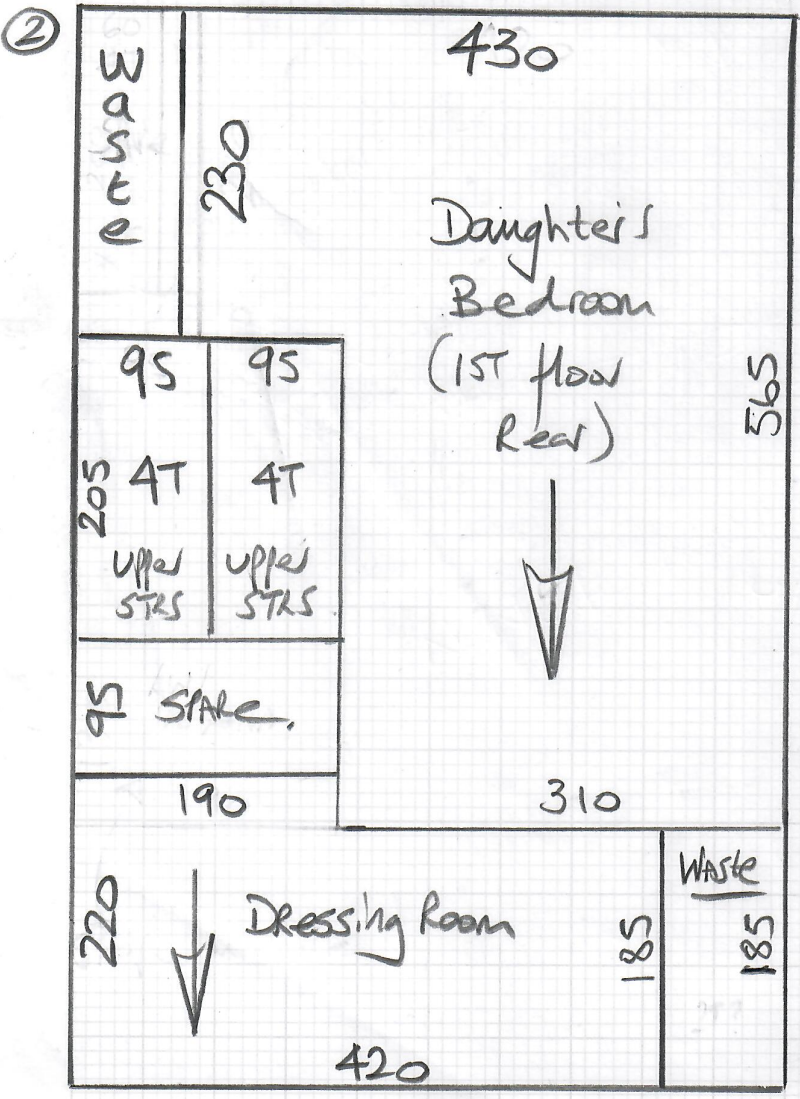 2
Waste
430
230
Daughter's
Bedroom
(1ST floor
Rear)
565
95
95
205
4T
4T
upper
STRS
upper
STRS
95
SPARe.
190
310
Waste
220
Dressing Room
185
185
420